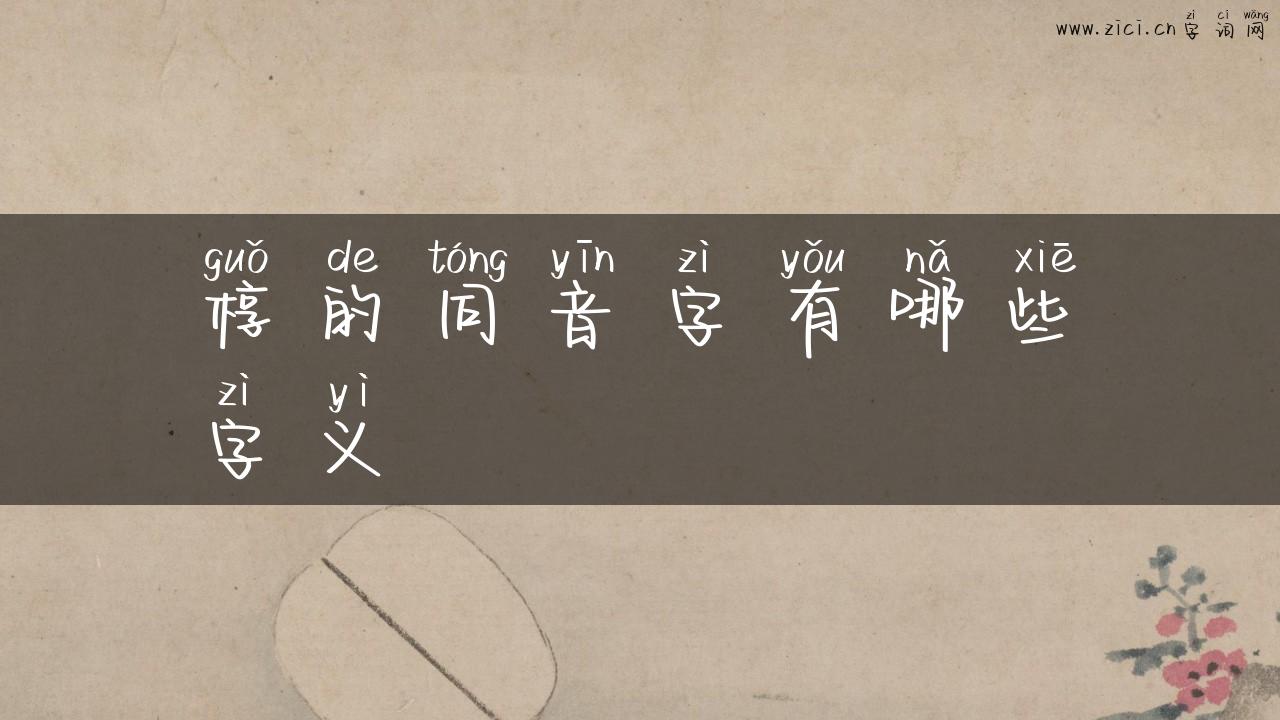 zì cí wǎng
www.zici.cn 字词网
guǒ de tóng yīn zì yǒu nǎ xiē
椁的同音字有哪些
zì yì
字义